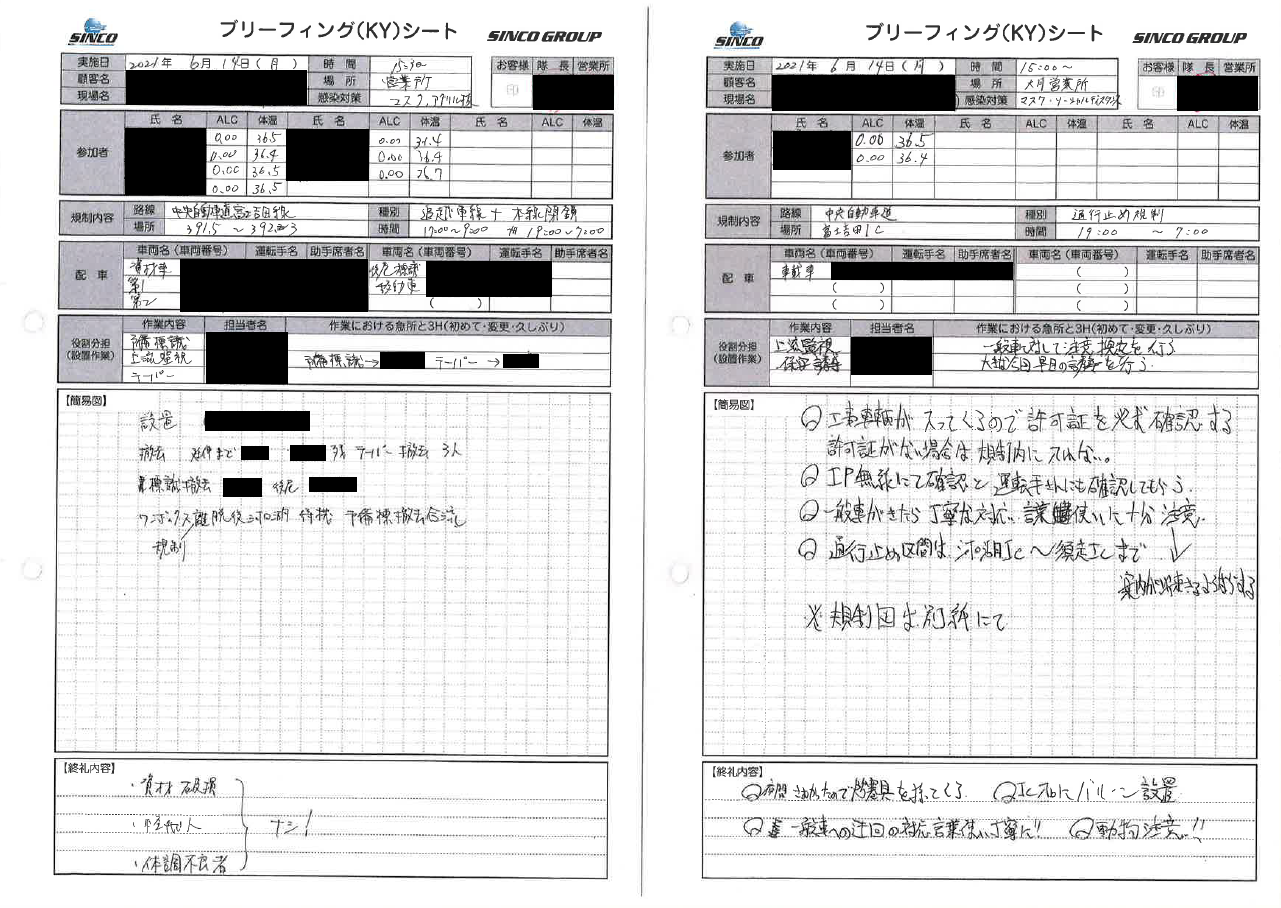 SINCO
ブリーフィング(KY)シート
SINCO GROUP
実施日 2021年 6月 14日(月) 時間 15:30
顧客名 場所 営業所
現場名 感染対策 マスク、アクリル板
お客様 隊長 営業所
印
参加者
氏名 ALC 体温 氏名 ALC 体温 氏名 ALC 体温
0.00 36.5 0.00
0.00 36.4 0.00 36.4
0.00 36.5 0.00
0.00 36.5
規制内容
路線 中央自動車道富士吉田線 種別 追越車線+本線閉鎖
場所 391.5 ~ 時間 19:00~7:00
配車
車両名(車両番号) 運転手名 助手席者名 車両名(車両番号) 運転手名 助手席者名
資材車 後尾標識
第1 移動車
第2 ( )
役割分担(設置作業)
作業内容 担当者名 作業における急所と3H(初めて・変更・久しぶり)
予備標識
上流監視 予備標識→ テーパー→
テーパー
【簡易図】
設置
撤去 まで 3名 テーパー撤去 3人
標識撤去 後尾
ワンボックス離脱後 待機 予備標撤去合流
規制
【終礼内容】
・資材破損
・怪我人 ナシ!
・体調不良者
SINCO
ブリーフィング(KY)シート
SINCO GROUP
実施日 2021年 6月 14日(月) 時間 15:00~
顧客名 場所 大月営業所
現場名 感染対策 マスク・ソーシャルディスタンス
お客様 隊長 営業所
印
参加者
氏名 ALC 体温 氏名 ALC 体温 氏名 ALC 体温
0.00 36.5
0.00 36.4
規制内容
路線 中央自動車道 種別 通行止め規制
場所 富士吉田IC 時間 19:00 ~ 7:00
配車
車両名(車両番号) 運転手名 助手席者名 車両名(車両番号) 運転手名 助手席者名
車載車 ( )
( ) ( )
( ) ( )
役割分担(設置作業)
作業内容 担当者名 作業における急所と3H(初めて・変更・久しぶり)
上流監視 一般車に対して注意、検定を行う
保安誘導 早目の誘導を行う
【簡易図】
工事車輌が入ってくるので許可証を必ず確認する
許可証がない場合は規制内に入れない。
IP無線にて確認と運転手さんにも確認してもらう
一般車がきたら丁寧な対応、言葉使いに十分注意
通行止め区間は河口湖IC~須走ICまで
案内が出来るようにする
※規制図は別紙にて
【終礼内容】
夜間 ICに バルーン設置
一般車への迂回の対応言葉使い丁寧に!! 動物注意!!